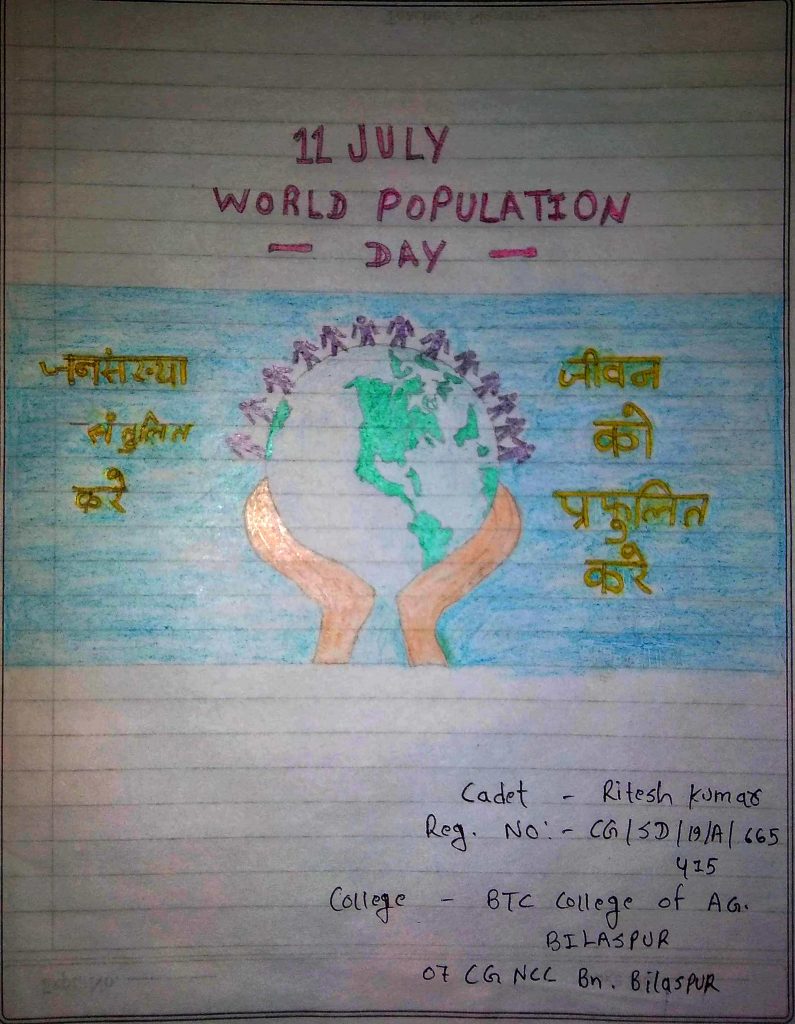 11 JULY
WORLD POPULATION
— DAY —
जनसंख्या
संतुलित
करे
जीवन
को
प्रफुलित
करे
Cadet - Ritesh Kumar
Reg. No:- CG/SD/19/A/665
415
College - BTC College of AG.
BILASPUR
07 CG NCC Bn. BilasPUR